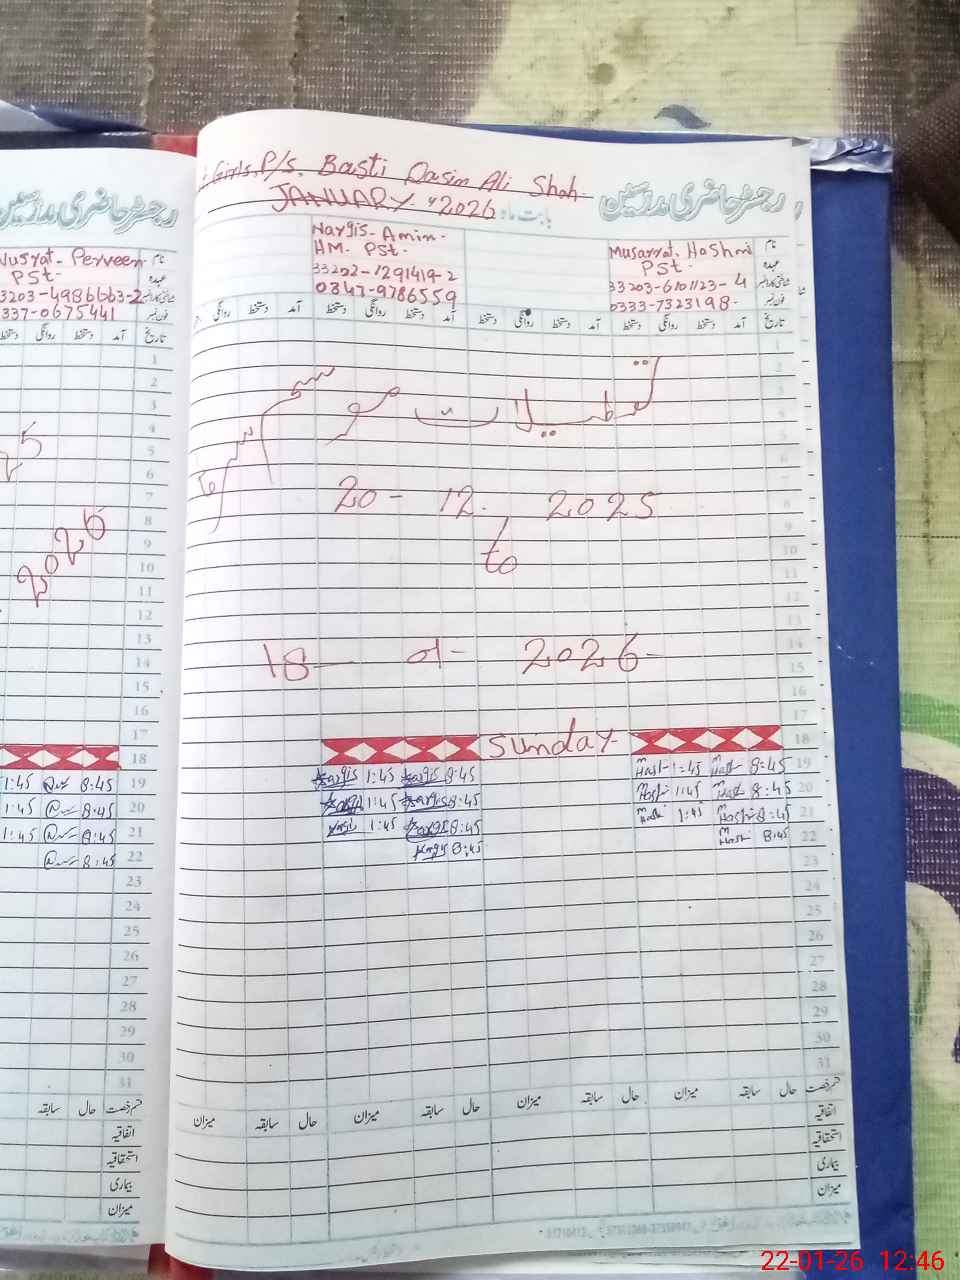 Girls. P/s. Basti Qasim Ali Shah.
JANUARY "2026
بابت ماہ
رجسٹر حاضری مدرسین
Nargis - Amin -
HM. PSt.
33202-1291419-2
0347-9786559
Musarrat. Hashmi
PSt -
33203-6101123-4
0333-7323198-
نام
عہدہ
شناختی کارڈ نمبر
فون نمبر
Nusrat - Perveen
PSt -
3203-4986663-2
337-0675441
نام
عہدہ
شناختی کارڈ نمبر
فون نمبر
تاریخ آمد دستخط روانگی دستخط آمد دستخط روانگی دستخط آمد دستخط روانگی دستخط آمد
تاریخ آمد دستخط روانگی دستخط
تعطیلات موسم سرما
20 - 12. 2025
to
18 — 01 - 2026 -
Sunday -
25
2026
1
2
3
4
5
6
7
8
9
10
11
12
13
14
15
16
17
18
19 1:45 8:45
20 1:45 8:45
21 1:45 8:45
22 8:45
23
24
25
26
27
28
29
30
31
1
2
3
4
5
7
8
9
10
11
12
13
14
15
16
17
18
Nargis 1:45 Nargis 8:45 Hash 1:45 Hash 8:45 19
Nargis 1:45 Nargis 8:45 Hash 1:45 Hash 8:45 20
Nargis 1:45 Nargis 8:45 Hash 1:45 Hash 8:45 21
Nargis 8:45 Hash 8:45 22
23
24
25
26
27
28
29
30
31
قسم رخصت حال سابقہ میزان حال سابقہ میزان حال سابقہ میزان حال سابقہ میزان
اتفاقیہ
استحقاقیہ
بیماری
میزان
قسم رخصت حال سابقہ
اتفاقیہ
استحقاقیہ
بیماری
میزان
22-01-26 12:46